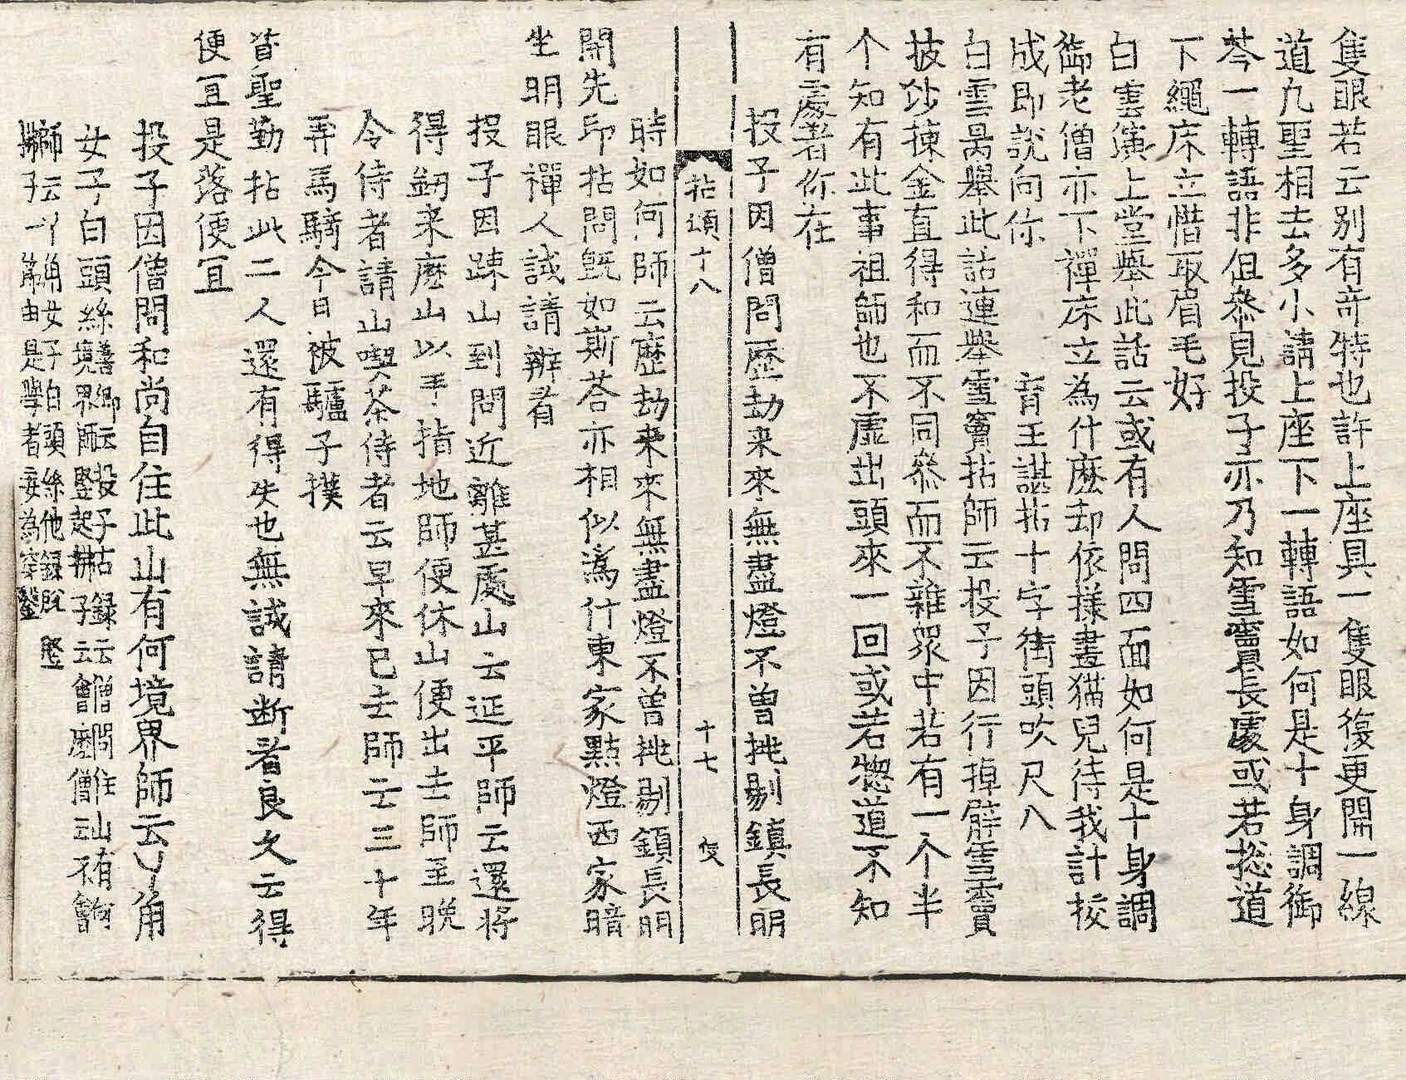 隻眼若云別有奇特也許上座具一隻眼復更開一線
道九聖相去多小請上座下一轉語如何是十身調御
答一轉語非但叅見投子亦乃知雪竇長處或若惣道
下繩床立惜取眉毛好
白雲演上堂舉此話云或有人問四面如何是十身調
御老僧亦下禪床立為什麽却依㨾畫猫兒待我計挍
成即說向你　育王諶拈十字街頭吹尺八
白雲昺舉此話連舉雪竇拈師云投子因行掉臂雪竇
披沙揀金直得和而不同叅而不雜眾中若有一个半
个知有此事祖師也不虛出頭來一回或若惣道不知
有處著你在
投子因僧問歷劫来來無盡燈不曾挑剔鎮長明
拈頌十八　十七
時如何師云歷劫来來無盡燈不曾挑剔鎮長明
開先印拈問旣如斯荅亦相似為什東家點燈西家暗
坐明眼禪人試請辨看
投子因踈山到問近離甚處山云延平師云還將
得劒来麽山以手指地師便休山便出去師至晚
令侍者請山喫茶侍者云早來已去師云三十年
弄馬騎今日被驢子撲
智聖勤拈此二人還有得失也無試請断看良久云得
便冝是落便冝
投子因僧問和尚自住此山有何境界師云丫角
女子白頭絲善卿云投子古録云僧問住山有何
境界師竪起拂子云會麽僧云不會
師云丫角女子白頭絲他録脫竪
拂子一節由是學者妄為穿鑿